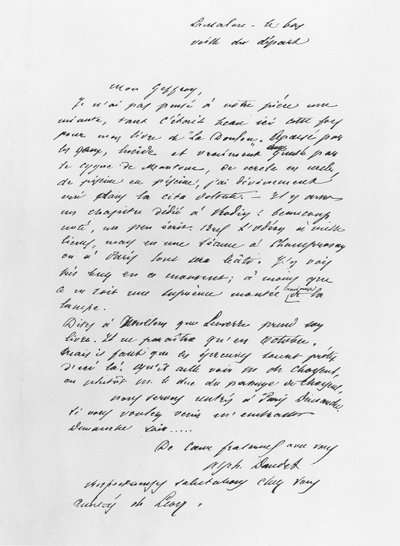 Lamalou-le bas
veille du départ
Mon Geffroy,
Je n'ai pas pensé à notre pièce une
minute, tant c'était beau ici cette fois
pour mon livre de "La Doulou". Apaisé par
les lucide et vraiment par
le cygne de de cercle en cercle,
de piscine en piscine, j'ai divinement
erré dans la cita dolente. - Il y aura
un chapitre dédié à Rodin! beaucoup
noté, un peu écrit. Bref l'Odéon à mille
lieues, mais en une séance à Champrosay
ou à Paris tout ira. J'y vois
très bien en ce moment; à moins que
ce ne soit une suprême montée de la
lampe.
Dites à que Lemerre prend son
livre. Il ne paraîtra qu'en octobre.
Mais il faut que les épreuves soient prêtes
d'ici là. Qu'il aille voir M. de
ou plutôt M. le duc du passage de Choiseul.
nous serons rentrés à Paris Dimanche,
si vous voulez venir m'embrasser
Dimanche soir.....
De cœur fraternel avec vous
Alph. Daudet
respectueuses salutations chez vous
amitiés de Léon.